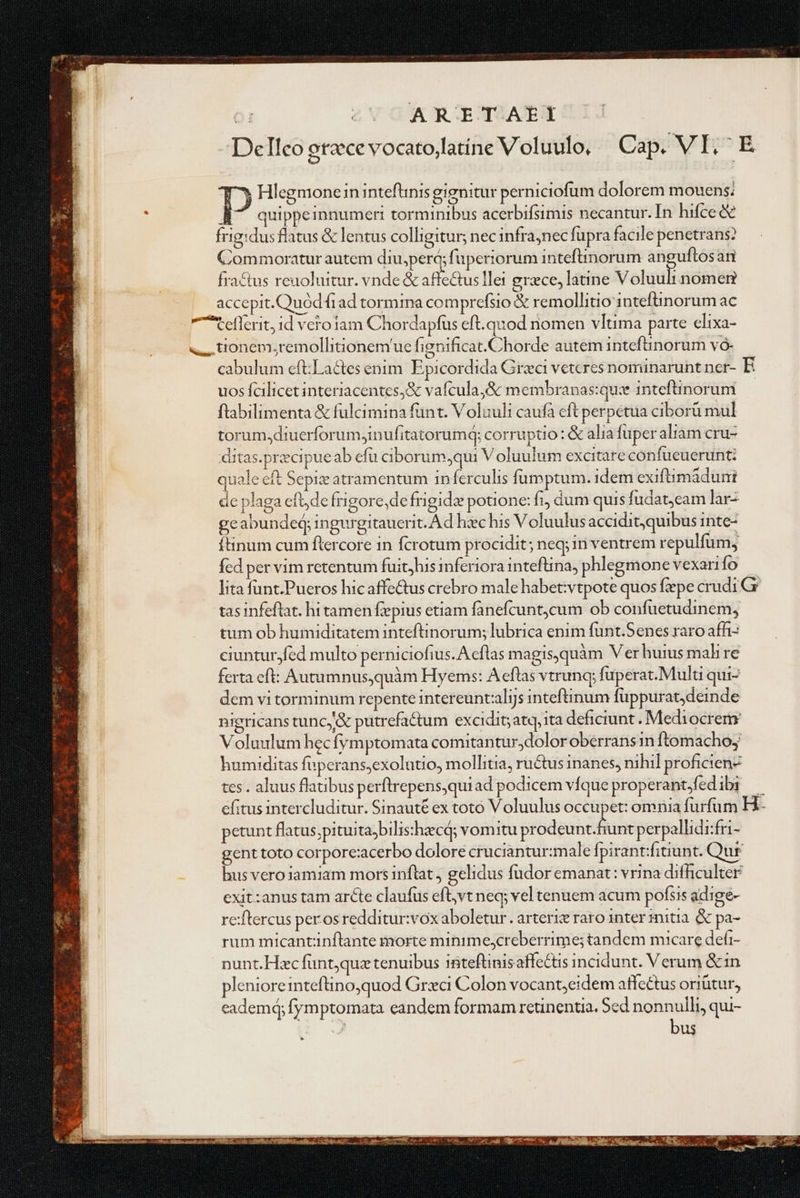 ARETAEI
De Ileo græce vocato, latine Voluulo, Cap. VI. E
PHlegmone in inteſtinis gignitur pernicioſum dolorem mouens:
quippe innumeri torminibus acerbiſsimis necantur. In hiſce &
frigidus flatus & lentus colligitur, nec infra, nec ſupra facile penetrans:
Commoratur autem diu, perq; ſuperiorum inteſtinorum anguſtos an
fractus reuoluitur. vnde & affectus Ilei græce, latine Voluuli nomen
accepit. Quòd ſi ad tormina compreſsio & remollitio inteſtinorum ac
ceſſerit, id vero iam Chordapſus eſt. quod nomen vltima parte elixa-
tionem, remollitionem'ue ſignificat. Chorde autem inteſtinorum vo-
cabulum eſt: Lactes enim Epicordida Græci veteres nominarunt ner- F
uos ſcilicet interiacentes, & vaſcula, & membranas: quæ inteſtinorum
ſtabilimenta & fulcimina ſunt. Voluuli cauſa eſt perpetua ciborū mul
torum, diuerſorum, inuſitatorumq; corruptio: & alia ſuper aliam cru-
ditas. præcipue ab eſu ciborum, qui Voluulum excitare conſueuerunt:
quale eſt Sepiæ atramentum in ferculis ſumptum. idem exiſtimādum
de plaga eſt, de frigore, de frigidæ potione: ſi, dum quis ſudat, eam lar-
ge abundeq; ingurgitauerit. Ad hæc his Voluulus accidit, quibus inte-
ſtinum cum ſtercore in ſcrotum procidit; neq; in ventrem repulſum,
ſed per vim retentum fuit, his inferiora inteſtina, phlegmone vexari ſo
lita ſunt. Pueros hic affectus crebro male habet: vtpote quos ſæpe crudi G
tas infeſtat. hi tamen ſæpius etiam ſaneſcunt, cum ob conſuetudinem,
tum ob humiditatem inteſtinorum; lubrica enim ſunt. Senes raro affi-
ciuntur, ſed multo pernicioſius. Aeſtas magis, quàm Ver huius mali re
ferta eſt: Autumnus, quàm Hyems: Aeſtas vtrunq; ſuperat. Multi qui-
dem vi torminum repente intereunt: alijs inteſtinum ſuppurat, deinde
nigricans tunc, & putrefactum excidit, atq, ita deficiunt. Mediocrem
Voluulum hęc ſymptomata comitantur, dolor oberrans in ſtomacho,
humiditas ſuperans, exolutio, mollitia, ructus inanes, nihil proficien-
tes. aluus flatibus perſtrepens, qui ad podicem vſque properant, ſed ibi
eſitus intercluditur. Sin autē ex toto Voluulus occupet: omnia ſurſum H
petunt flatus, pituita, bilis: hæcq; vomitu prodeunt. fiunt perpallidi: fri-
gent toto corpore: acerbo dolore cruciantur: male ſpirant: ſitiunt. Qui
bus vero iamiam mors inſtat, gelidus ſudor emanat: vrina difficulter
exit: anus tam arcte clauſus eſt, vt neq; vel tenuem acum poſsis adige-
re: ſtercus per os redditur: vox aboletur. arteriæ raro inter initia & pa-
rum micant: inſtante morte minime, creberrime; tandem micare deſi-
nunt. Hæc ſunt, quæ tenuibus inteſtinis affectis incidunt. Verum & in
pleniore inteſtino, quod Græci Colon vocant, eidem affectus oriūtur,
eademq; ſymptomata eandem formam retinentia. Sed nonnulli, qui-
bus